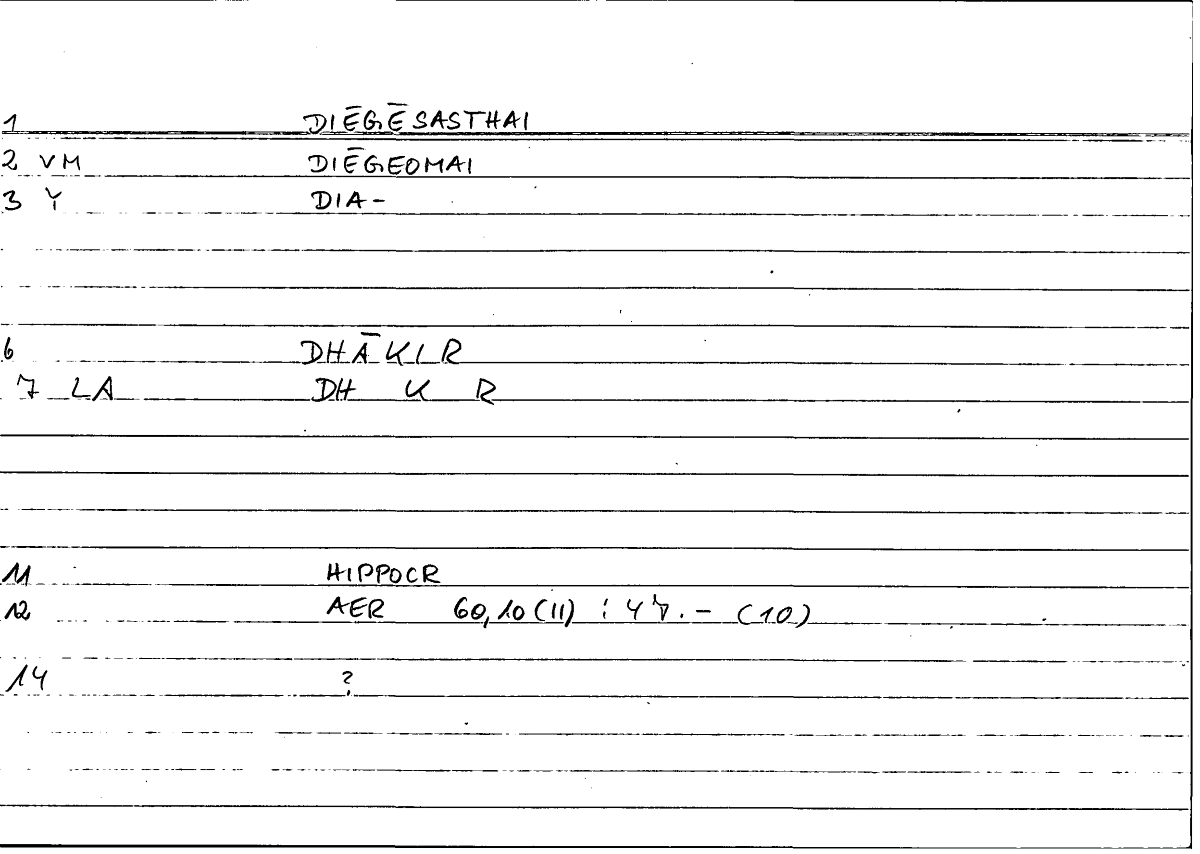 1 DIĒGĒSASTHAI
2 VM DIĒGEOMAI
3 Y DIA-
6 DHĀKIR
7 LA DH K R
11 HIPPOCR
12 AER 60,10(11) : 47.- (10)
14 ?